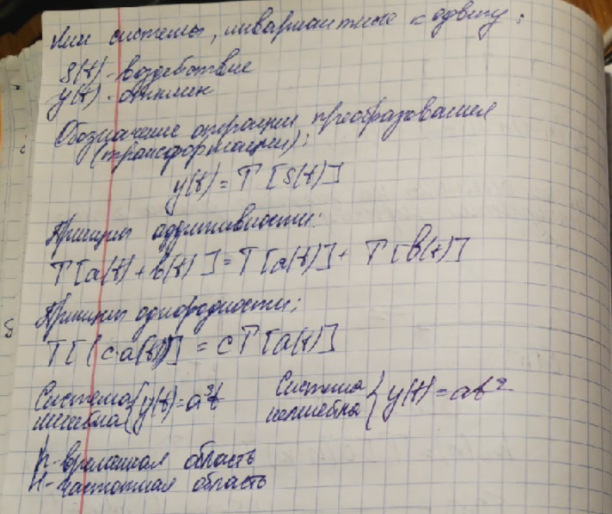 Лин системы, инвариантные к сдвигу:
S(t) - воздействие
y(t) - отклик
Обозначение операции преобразования
(трансформации):
y(t) = T [S(t)]
Принцип аддитивности:
T[a(t) + b(t)] = T[a(t)] + T[b(t)]
Принцип однородности:
T[(c·a(t))] = cT[a(t)]
Система линейна { y(t) = a²t
Система нелинейна { y(t) = at²
h - временная область
H - частотная область